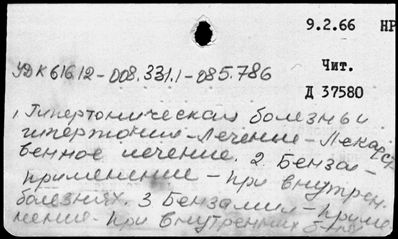 9.2.66 НР
УДК 616.12-008.331.1-085.786
Чит.
Д 37580
1. Гипертоническая болезнь и
гипертония - Лечение - Лекарст-
венное лечение. 2 Бензол -
применение - при внутрен.
болезнях. 3 Бензамин - приме-
нение - при внутренних